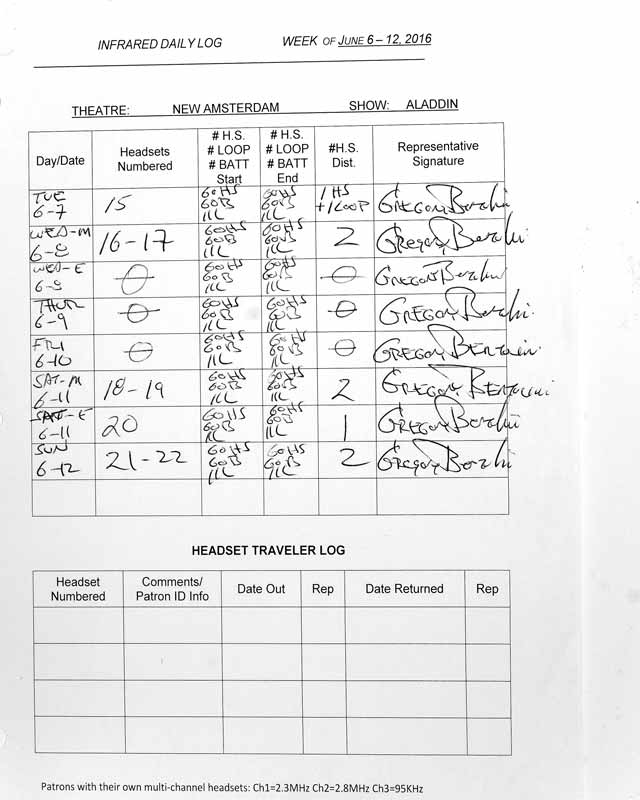 INFRARED DAILY LOG WEEK OF JUNE 6 – 12, 2016
THEATRE: NEW AMSTERDAM SHOW: ALADDIN
Day/Date Headsets Numbered # H.S. # LOOP # BATT Start # H.S. # LOOP # BATT End #H.S. Dist. Representative Signature
TUE 6-7 15 60HS 60B 11L 60HS 60B 11L 1 HS +1 LOOP GREGORY
WED-M 6-8 16-17 60HS 60B 11L 60HS 60B 11L 2 GREGORY
WED-E 6-8 0 60HS 60B 11L 60HS 60B 11L 0 GREGORY
THUR 6-9 0 60HS 60B 11L 60HS 60B 11L 0 GREGORY
FRI 6-10 0 60HS 60B 11L 60HS 60B 11L 0 GREGORY
SAT-M 6-11 18-19 60HS 60B 11L 60HS 60B 11L 2 GREGORY
SAT-E 6-11 20 60HS 60B 11L 60HS 60B 11L 1 GREGORY
SUN 6-12 21-22 60HS 60B 11L 60HS 60B 11L 2 GREGORY
HEADSET TRAVELER LOG
Headset Numbered Comments/ Patron ID Info Date Out Rep Date Returned Rep
Patrons with their own multi-channel headsets: Ch1=2.3MHz Ch2=2.8MHz Ch3=95KHz